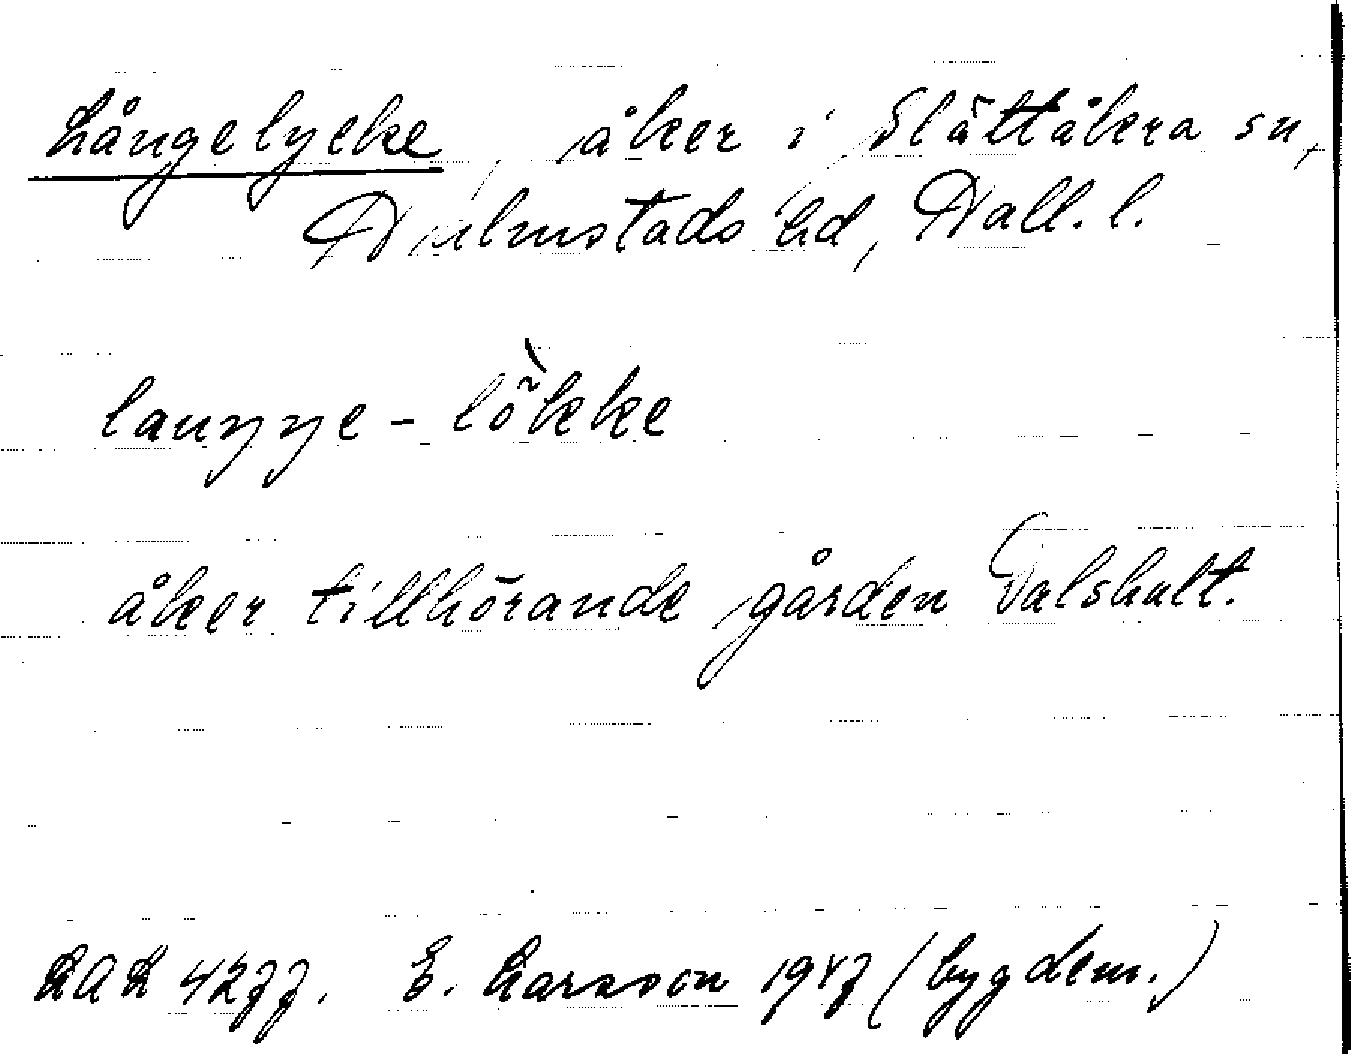 Långelycke, åker i Slättåkra sn,
Halmstads hd, Hall. l.
laŋŋe-lökke
åker tillhörande gården Valshult.
LAL 4277. E. Larsson 1947 (bygdem.)